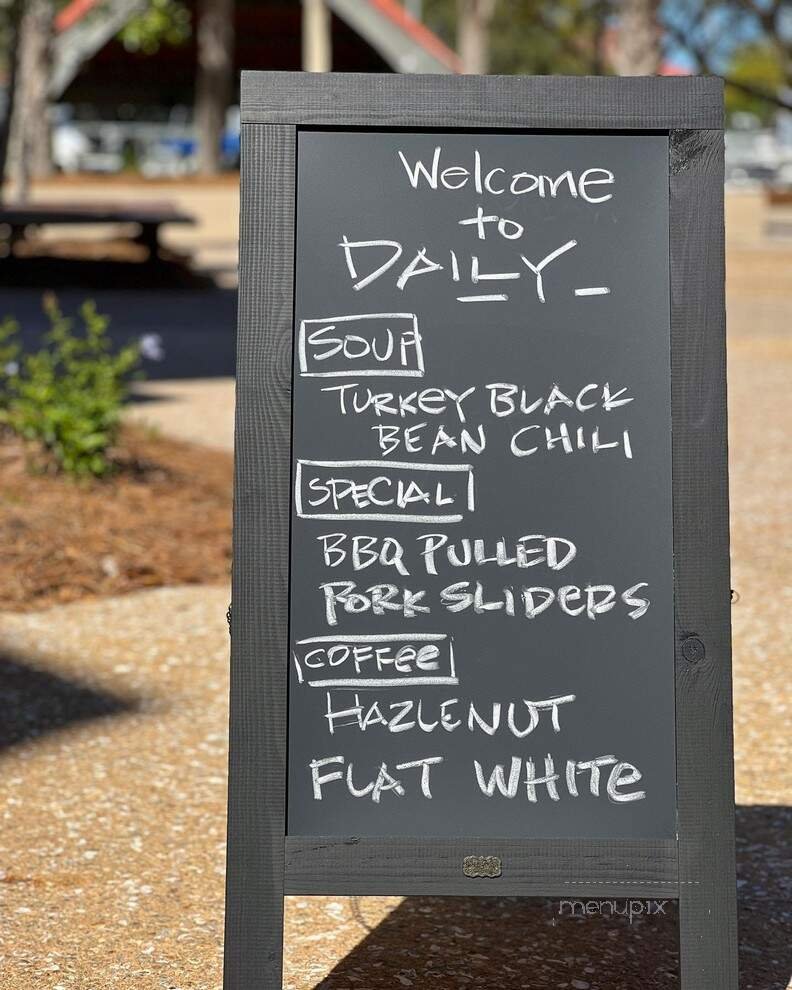 Welcome
to
DAILY_
SOUP
TURKEY BLACK
BEAN CHILI
SPECIAL
BBQ PULLED
PORK SLIDERS
COFFEE
HAZLENUT
FLAT WHITE
menupix